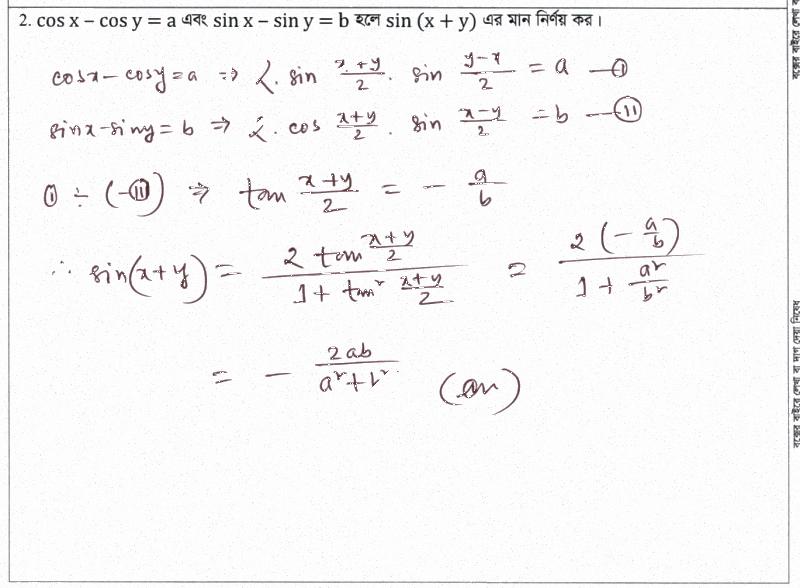 2. cos x – cos y = a এবং sin x – sin y = b হলে sin (x + y) এর মান নির্ণয় কর।
cosx - cosy = a ⇒ 2. sin (x+y)/2 . sin (y-x)/2 = a —(i)
sinx - siny = b ⇒ 2. cos (x+y)/2 . sin (x-y)/2 = b —(ii)
(i) ÷ (-(ii)) ⇒ tan (x+y)/2 = - a/b
∴ sin(x+y) = (2 tan (x+y)/2)/(1 + tan² (x+y)/2) = (2(-a/b))/(1 + a²/b²)
= - 2ab/(a²+b²) (an)